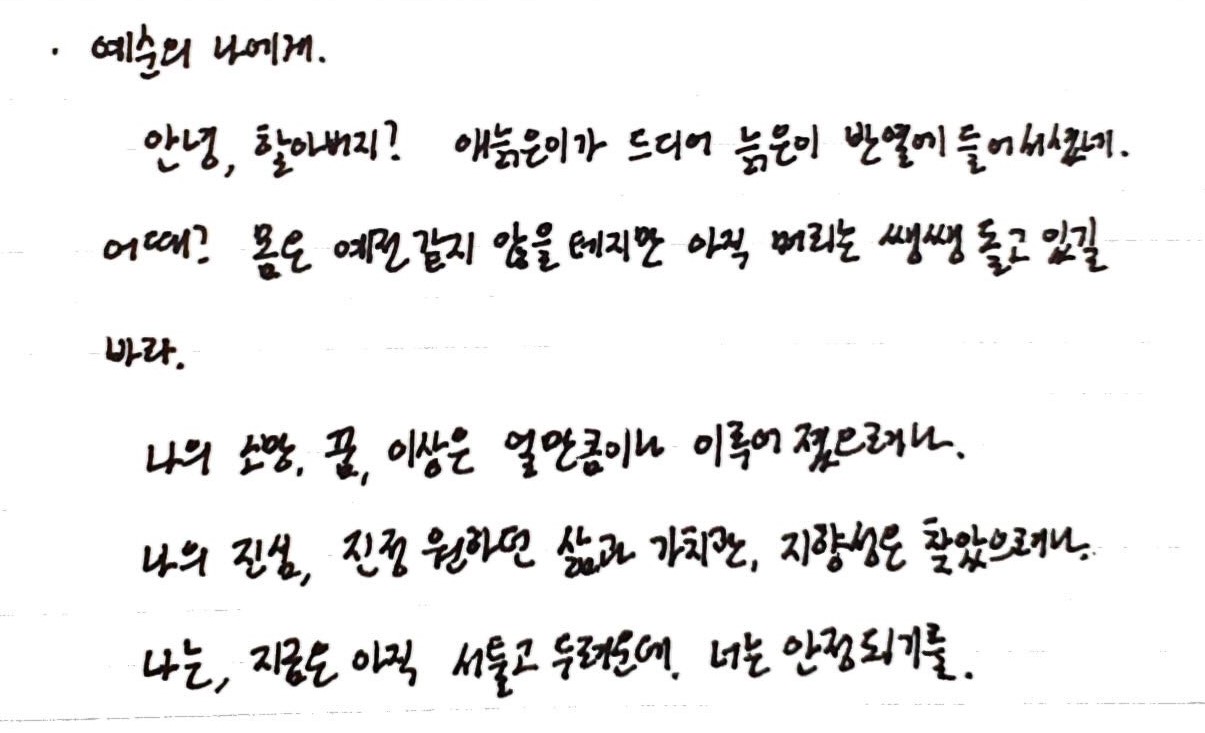 · 예순의 나에게.
안녕, 할아버지? 애늙은이가 드디어 늙은이 반열에 들어서셨네.
어때? 몸은 예전같지 않을테지만 아직 머리는 쌩쌩 돌고 있길
바라.
나의 소망, 꿈, 이상은 얼만큼이나 이루어졌으려나.
나의 진심, 진정 원하던 삶과 가치관, 지향성은 찾았으려나.
나는, 지금은 아직 서툴고 두려운데. 너는 안정되기를.